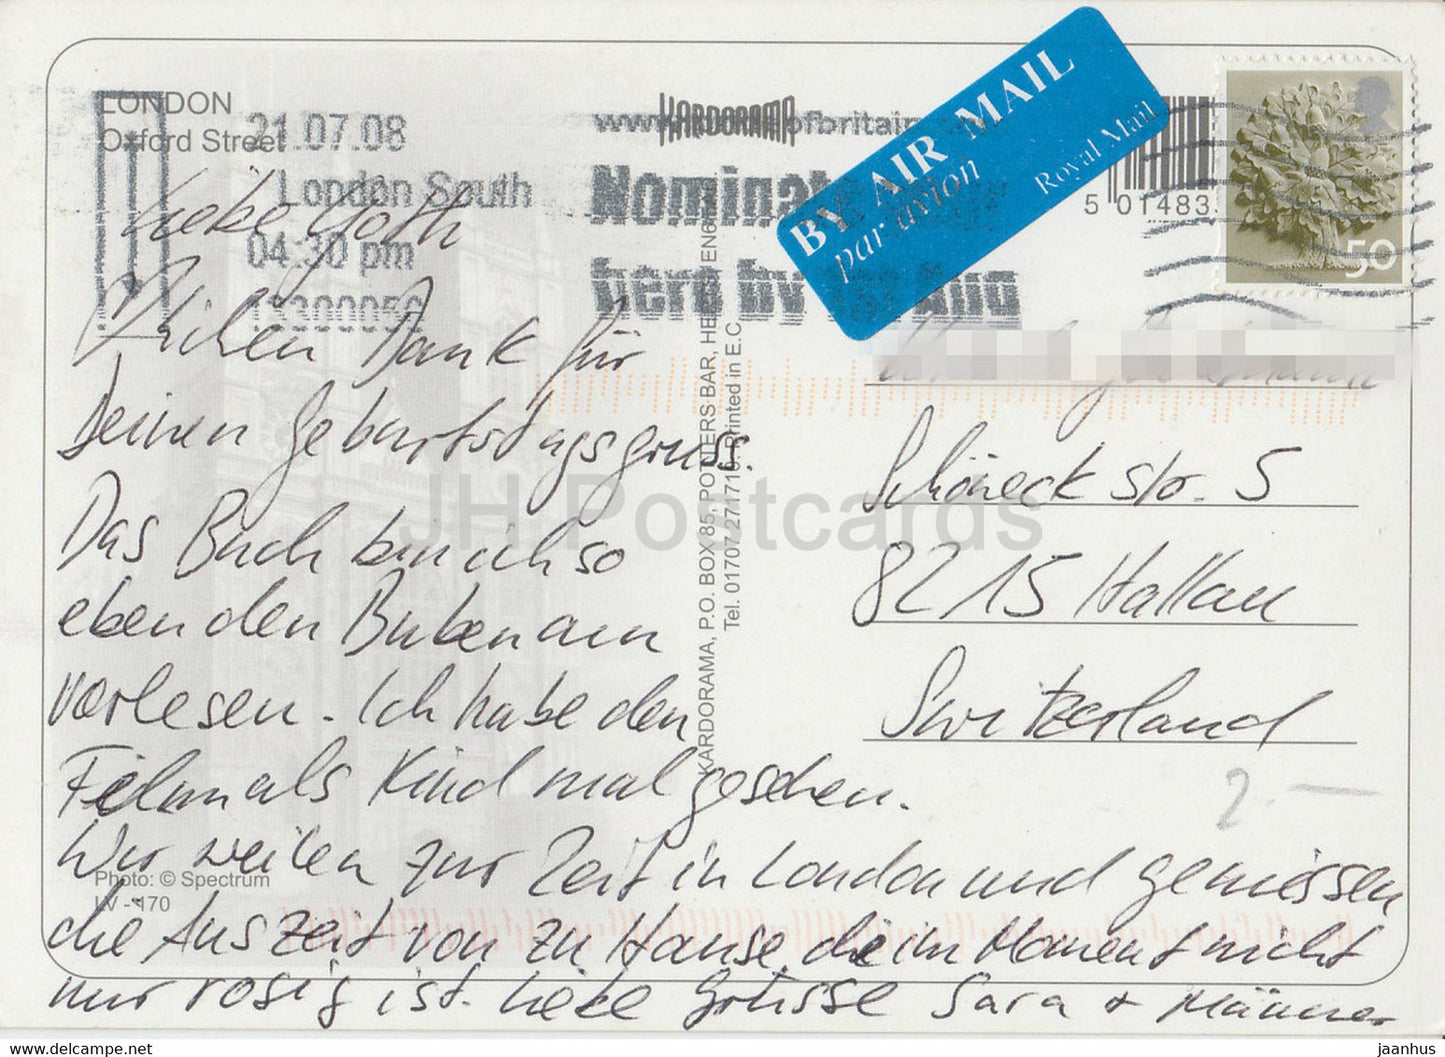 LONDON
Oxford Street
21.07.08
London South
04:30 pm
13300050
KARDORAMA
www. ofbritain
Nominat
hero by Aug
BY AIR MAIL
par avion
Royal Mail
5 01483
50
Liebe Gotti
Vielen Dank für
Deinen Geburtstagsgruss.
Das Buch bin ich so
eben den Buben am
vorlesen. Ich habe den
Film als Kind mal gesehen.
Wir weilen zur Zeit in London und geniessen
die Auszeit von zu Hause, die im Moment nicht
nur rosig ist. Liebe Grüsse Sara + Männer
Photo: © Spectrum
LV - 170
KARDORAMA, P.O. BOX 85, POTTERS BAR, HERTS, EN6
Tel. 01707 271710. Printed in E.C.
Schöneckstr. 5
8215 Hallau
Switzerland
2.—
JH Postcards
www.delcampe.net
jaanhus